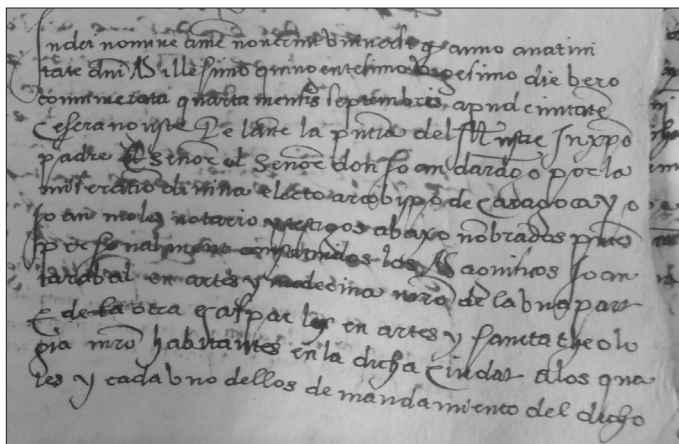 In dei nomine ame noverint universi q anno a nativi
tate dni Millesimo quinoentesimo vigesimo die vero
comumerata quarta mensis septembris apud civitate
Cesarauguste Et ante la pntia del Illustre In xpo
padre El señor el señor don Joan daragō por la
miseratiō divina electo arcobispo de Caragoca y o
Joan moles notario y testigos abaxo nōbrados pnte
personalmente los Magnificos Joan
carabal en artes y medecina mro de la una part
E de la otra gaspar lax en artes y santa theolo
gia mro habitantes en la dicha Ciudat a los qua
les y cada uno dellos de mandamiento del dicho